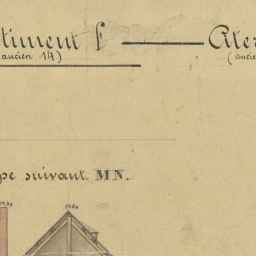 timent f — Ater
(ancien 14) (ancie
pe suivant MN.